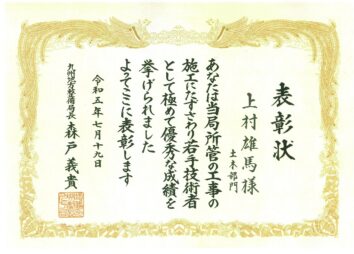 表彰状
土木部門
上村雄馬様
あなたは当局所管の工事の
施工にたずさわり若手技術者
として極めて優秀な成績を
挙げられました
よってここに表彰します
令和五年七月十九日
九州地方整備局長 森戸義貴